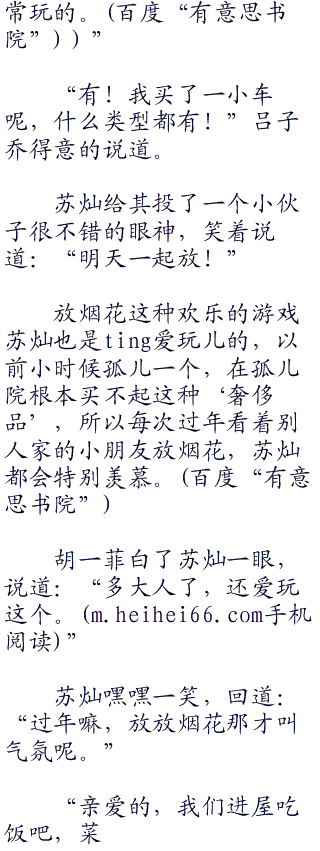 常玩的。(百度“有意思书
院”))”
“有！我买了一小车
呢，什么类型都有！”吕子
乔得意的说道。
苏灿给其投了一个小伙
子很不错的眼神，笑着说
道：“明天一起放！”
放烟花这种欢乐的游戏
苏灿也是ting爱玩儿的，以
前小时候孤儿一个，在孤儿
院根本买不起这种‘奢侈
品’，所以每次过年看着别
人家的小朋友放烟花，苏灿
都会特别羡慕。(百度“有意
思书院”)
胡一菲白了苏灿一眼，
说道：“多大人了，还爱玩
这个。(m.heihei66.com手机
阅读)”
苏灿嘿嘿一笑，回道：
“过年嘛，放放烟花那才叫
气氛呢。”
“亲爱的，我们进屋吃
饭吧，菜